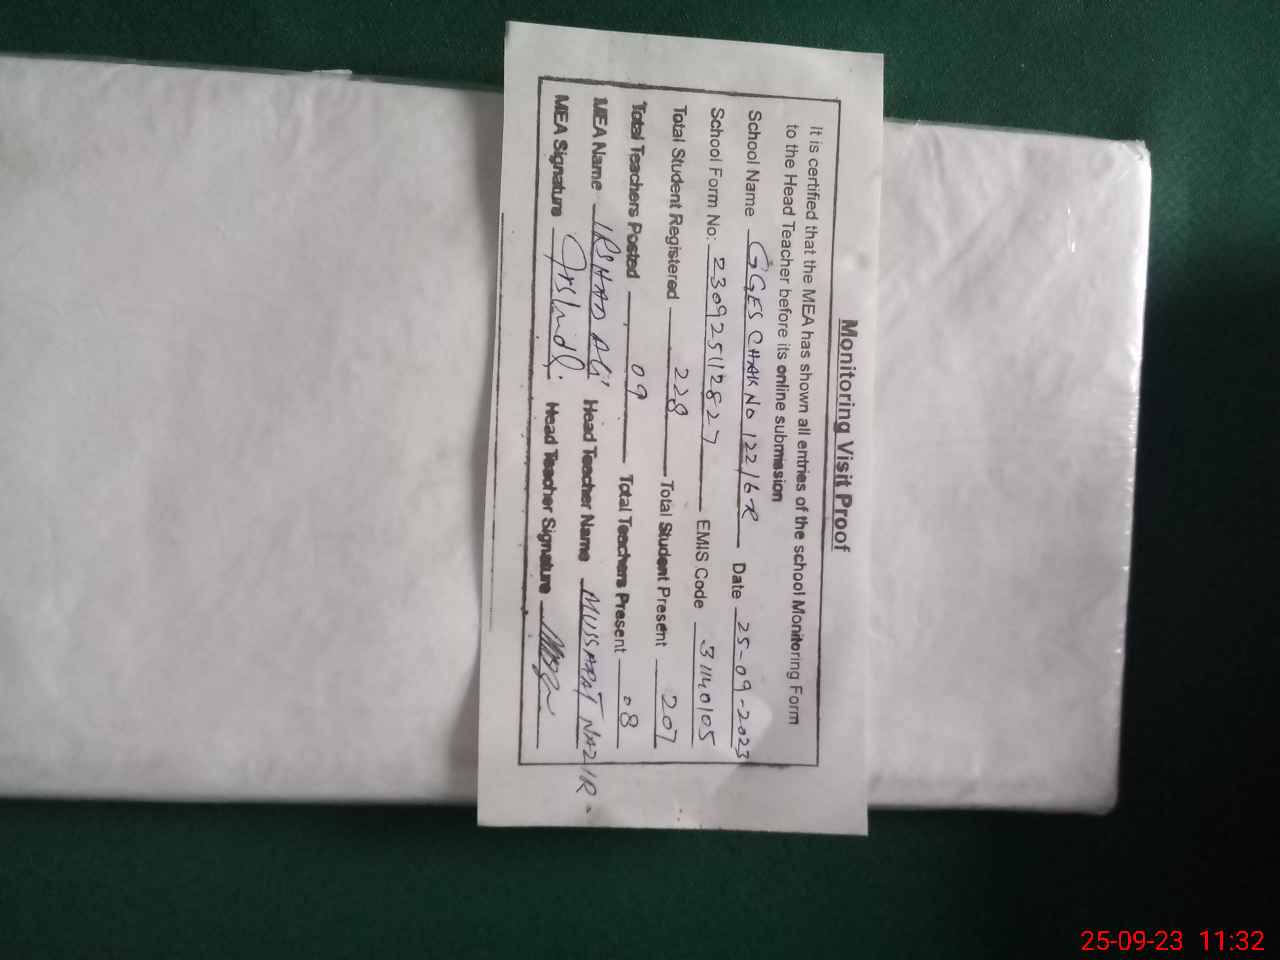 Monitoring Visit Proof
It is certified that the MEA has shown all entries of the school Monitoring Form
to the Head Teacher before its online submission
School Name GGES CHAK NO 122/6R Date 25-09-2023
School Form No: 230925112827 EMIS Code 31140105
Total Student Registered 228 Total Student Present 207
Total Teachers Posted 09 Total Teachers Present 08
MEA Name IRSHAD ALI Head Teacher Name MUSSARAT NAZIR
MEA Signature Irshad Head Teacher Signature
25-09-23 11:32